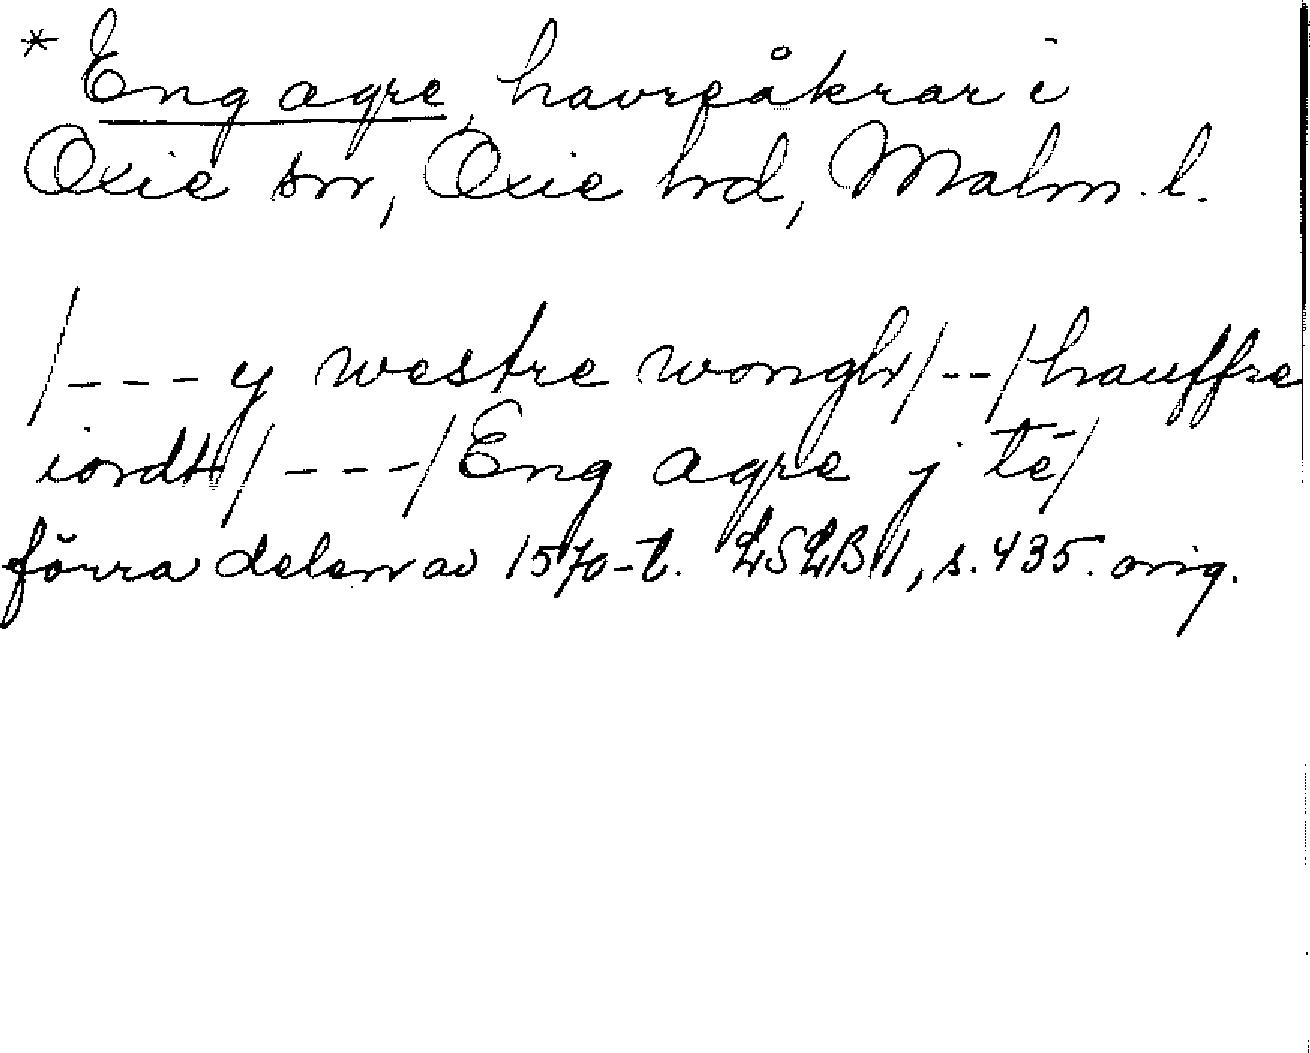 * Eng agre, havreåkrar i
Oxie sn, Oxie hd, Malm. l.
/---y westre wongh/--/hauffre
iordt/---/Eng agre j tē/
förra delen av 1570-t. LSLB 1, s. 435. orig.